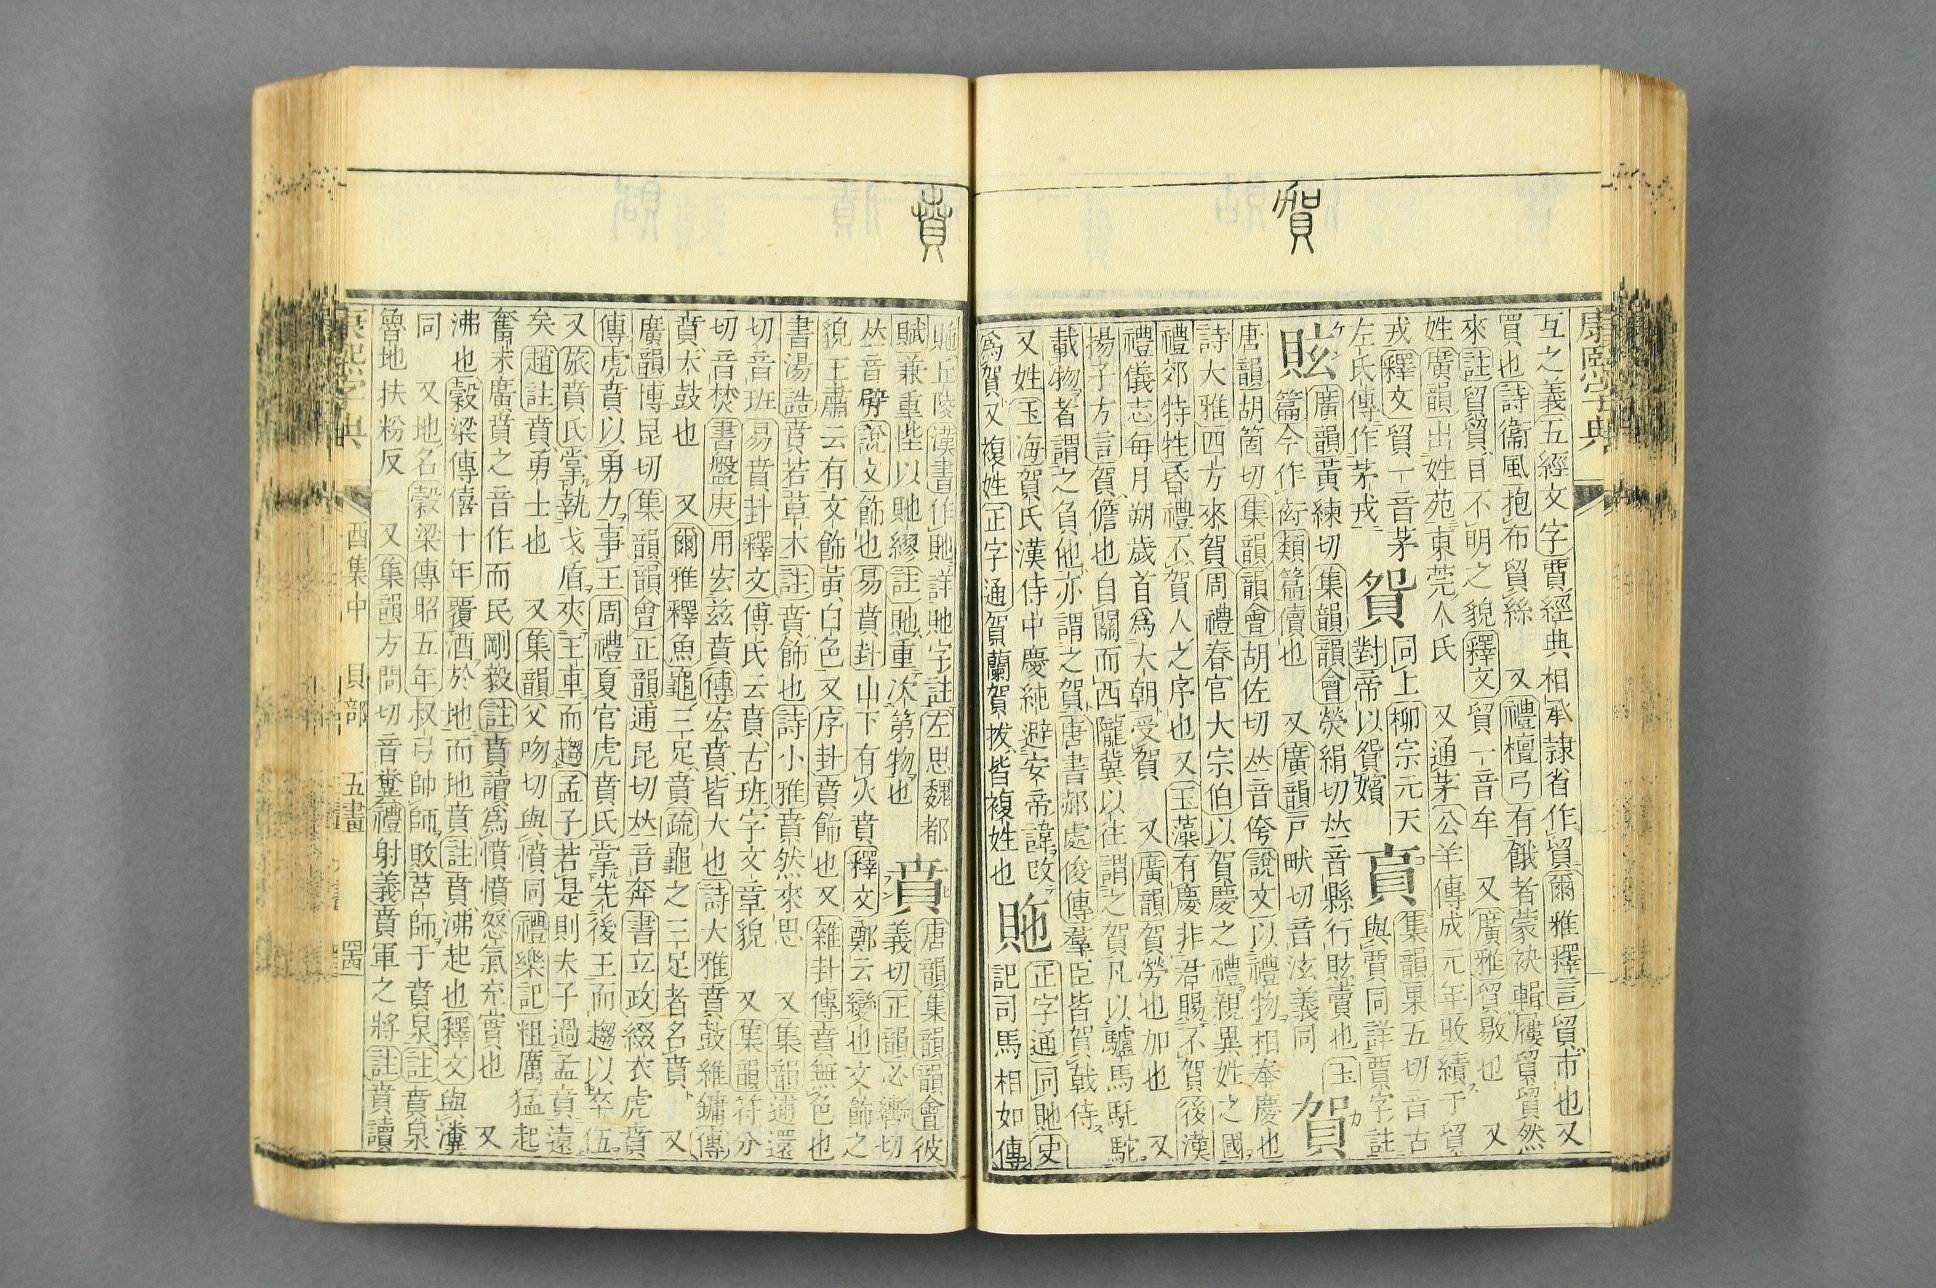 賀
康熙字典
互之義五經文字賈經典相承隷省作貿爾雅釋言貿市也又
買也詩衞風抱布貿絲 又禮檀弓有餓者蒙袂輯屨貿貿然
來註貿貿目不明之貌釋文貿一音牟 又廣雅貿敭也 又
姓廣韻出姓苑東莞人氏 又通茅公羊傳成元年敗績于貿
戎釋文貿一音茅 貿 同上柳宗元天 賁 集韻果五切音古
左氏傳作茅戎 對帝以貿嬪 與賈同詳賈字註
眩 廣韻黃練切集韻韻會熒絹切𠀤音縣行眩賣也玉 賀
篇今作衒類篇儥也 又廣韻戸畎切音泫義同
唐韻胡箇切集韻韻會胡佐切𠀤音侉說文以禮物相奉慶也
詩大雅四方來賀周禮春官大宗伯以賀慶之禮親異姓之國
禮郊特牲昏禮不賀人之序也又玉藻有慶非君賜不賀後漢
禮儀志每月朔歲首爲大朝受賀 又廣韻賀勞也加也 又
揚子方言賀儋也自關而西隴冀以往謂之賀凡以驢馬馲駝
載物者謂之負他亦謂之賀唐書郝處俊傳羣臣皆賀戟侍
又姓玉海賀氏漢侍中慶純避安帝諱改 貤 正字通同貤史
爲賀又複姓正字通賀蘭賀拔皆複姓也 記司馬相如傳
賁
貤丘陵漢書作貤詳貤字註左思魏都 賁 唐韻集韻韻會彼
賦兼重陛以貤繆註貤重次第物也 義切正韻必轡切
𠀤音臂說文飾也易賁卦山下有火賁釋文鄭云變也文飾之
貌王肅云有文飾黃白色又序卦賁飾也又雜卦傳賁無色也
書湯誥賁若草木註賁飾也詩小雅賁然來思 又集韻逋還
切音班易賁卦釋文傅氏云賁古班字文章貌 又集韻符分
切音焚書盤庚用宏兹賁傳宏賁皆大也詩大雅賁鼓維鏞傳
賁大鼓也 又爾雅釋魚龜三足賁疏龜之三足者名賁 又
廣韻博昆切集韻韻會正韻逋昆切𠀤音奔書立政綴衣虎賁
傳虎賁以勇力事王周禮夏官虎賁氏掌先後王而趨以卒伍
又旅賁氏掌執戈盾夾王車而趨孟子若是則夫子過孟賁遠
矣趙註賁勇士也 又集韻父吻切與憤同禮樂記粗厲猛起
奮末廣賁之音作而民剛毅註賁讀爲憤憤怒氣充實也 又
沸也穀梁傳僖十年覆酒於地而地賁註賁沸起也釋文與濆
同 又地名穀梁傳昭五年叔弓帥師敗莒師于賁泉註賁泉
魯地扶粉反 又集韻方問切音糞禮射義賁軍之將註賁讀
康熙字典 酉集中 貝部 五畫